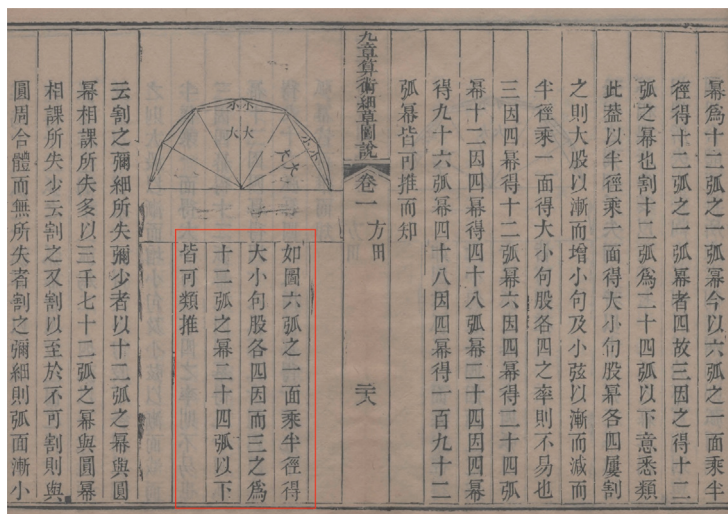 冪爲十二弧之一弧冪今以六弧之一面乘半
徑得十二弧之一弧冪者四故三因之得十二
弧之冪也割十二弧爲二十四弧以下意悉類
此葢以半徑乘一面得大小句股冪各四屢割
之則大股以漸而增小句及小弦以漸而減而
半徑乘一面得大小句股各四之率則不易也
三因四冪得十二弧冪六因四冪得二十四弧
冪十二因四冪得四十八弧冪二十四因四冪
得九十六弧冪四十八因四冪得一百九十二
弧冪皆可推而知
九章算術細草圖說 卷一 方田
小小
大大
小小
大大
如圖六弧之一面乘半徑得
大小句股各四因而三之爲
十二弧之冪二十四弧以下
皆可類推
云割之彌細所失彌少者以十二弧之冪與圓
冪相課所失多以三千七十二弧之冪與圓冪
相課所失少云割之又割以至於不可割則與
圓周合體而無所失者割之彌細則弧面漸小